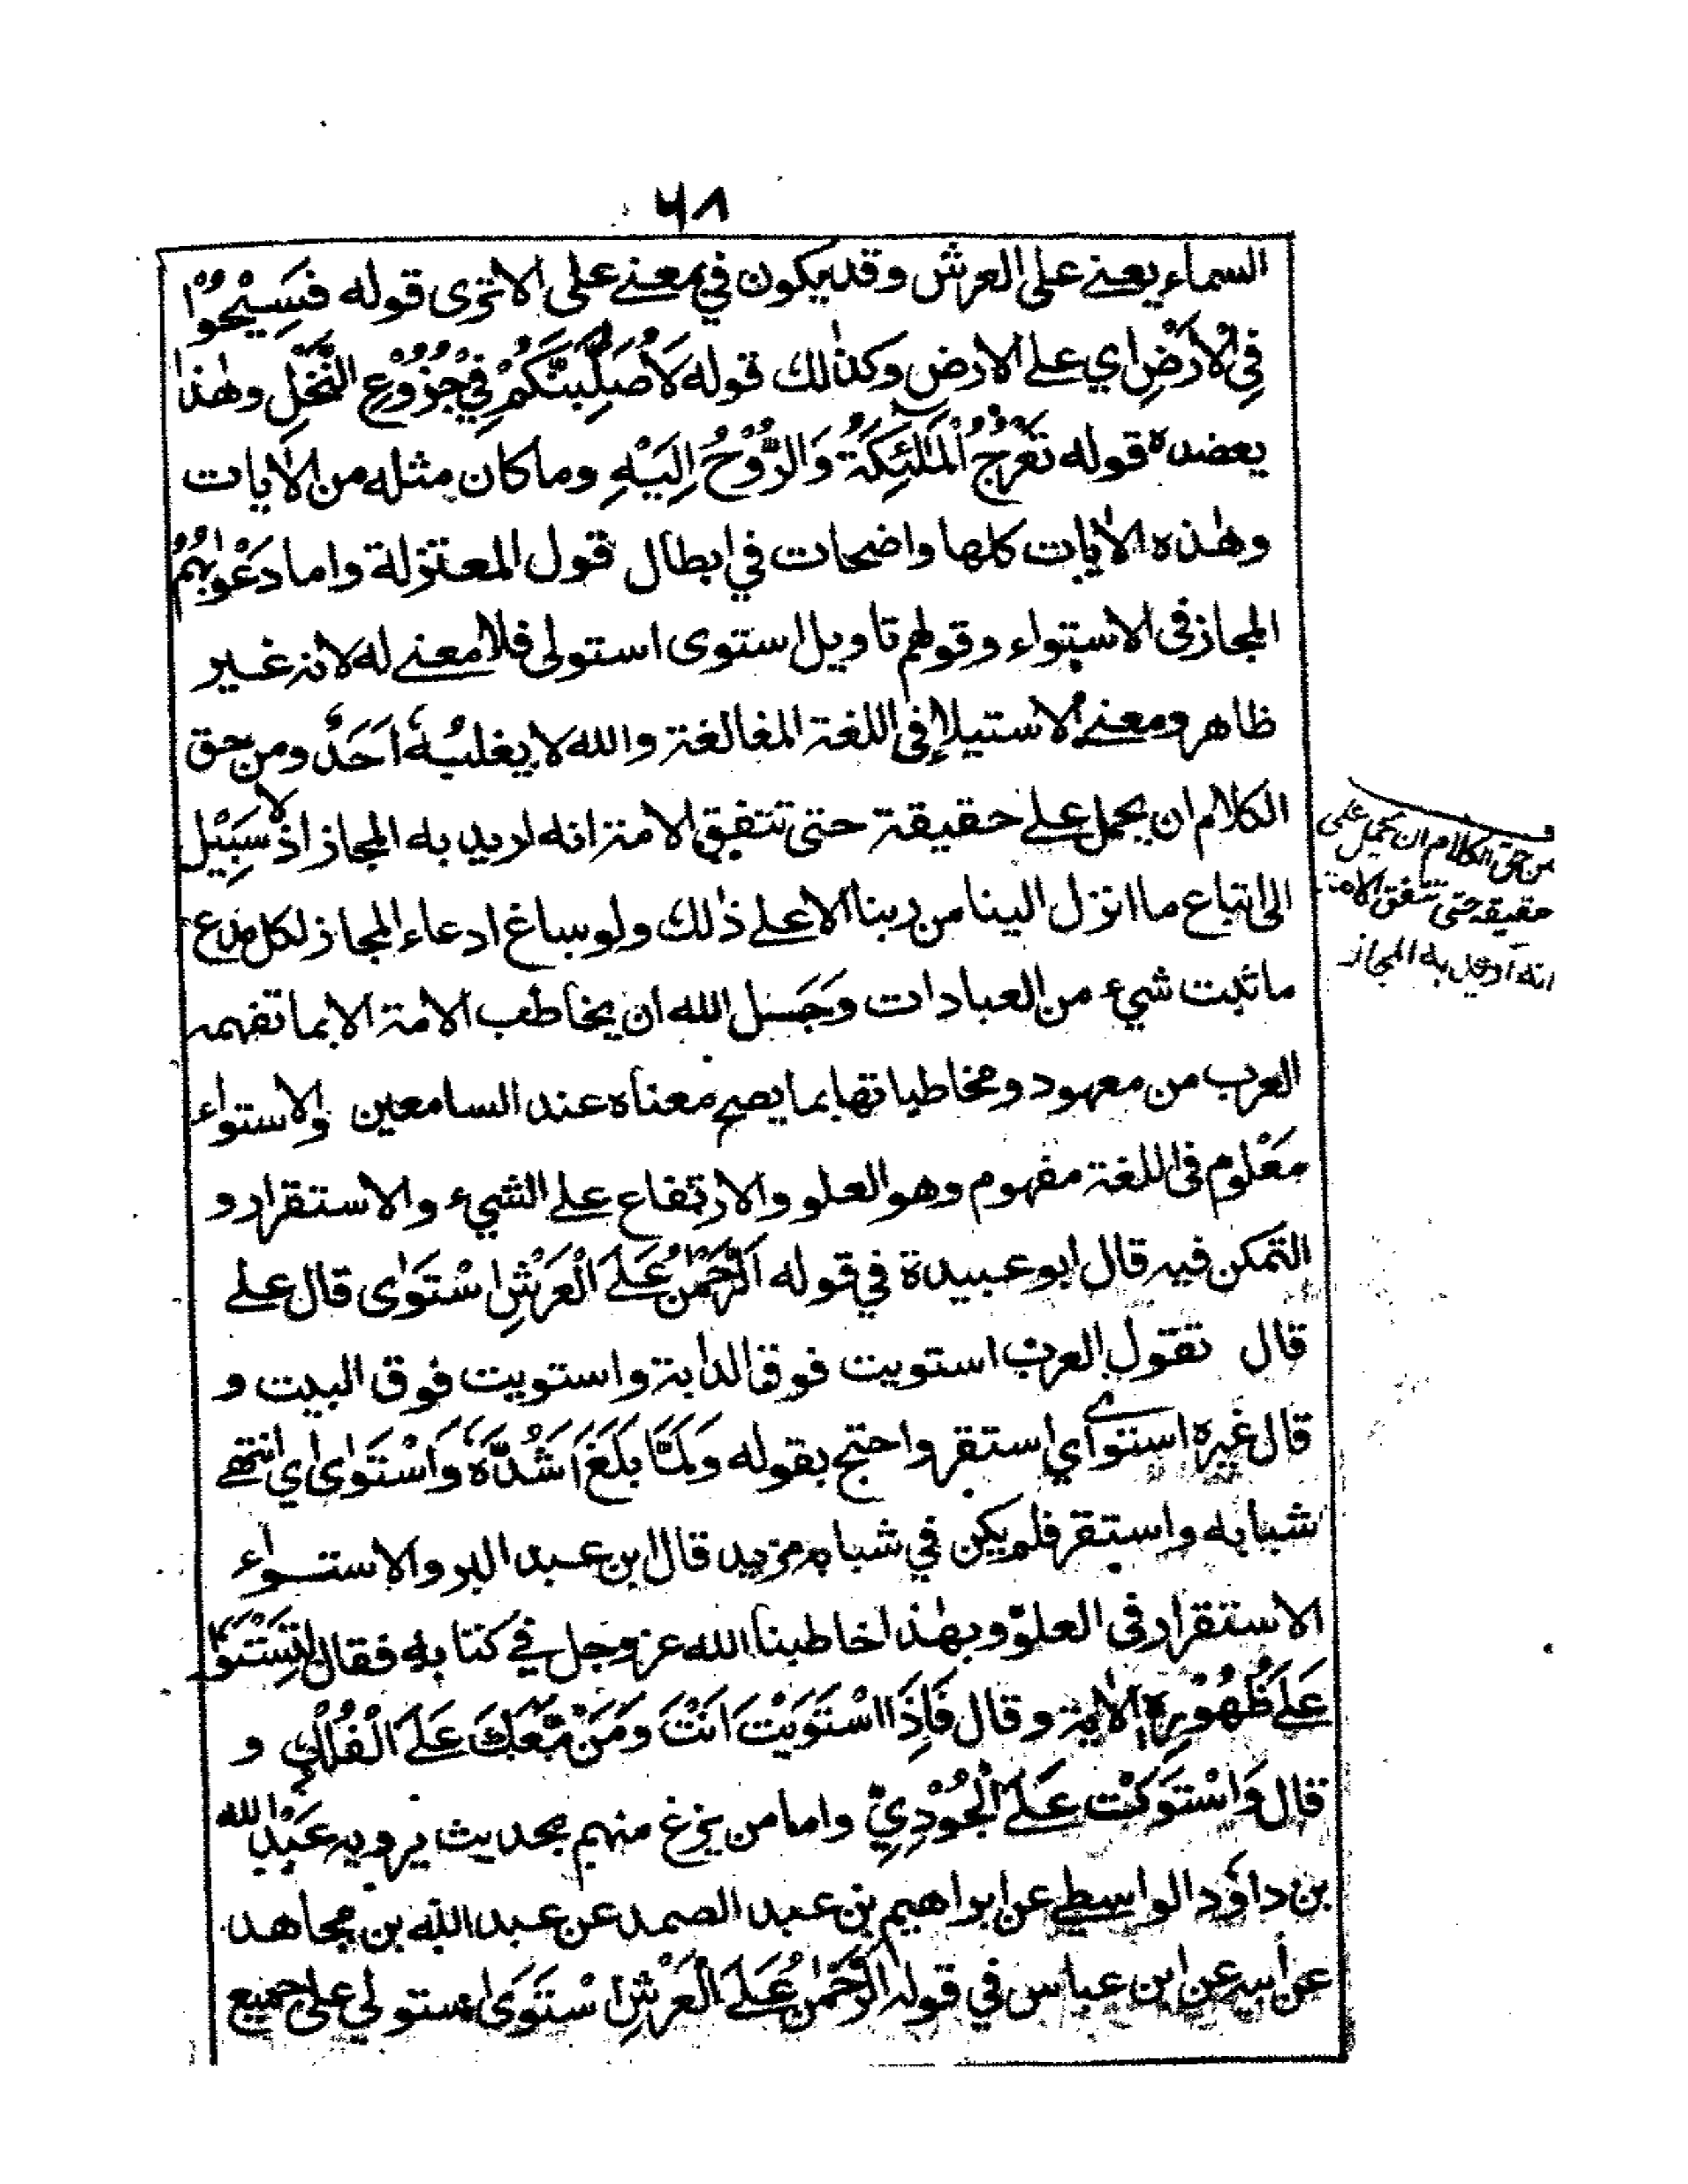 ٦٨
السماء يعنے علی العرش وقد يكون في معنے علی الا ترى قوله فَسِيْحُوْا
فِي الْاَرْضِ اي علے الارض وكذالك قوله لَاُصَلِّبَنَّكُمْ فِيْ جُزُوْعِ النَّخْلِ وهٰذا
يعضده قوله تَعْرُجُ الْمَلٰٓئِكَةُ وَالرُّوْحُ اِلَيْهِ وما كان مثله من الاٰيات
وهٰذه الاٰيات كلها واضحات في ابطال قول المعتزلة واما دَعْوٰىهُمُ
المجاز فى الاستواء وقولهم تاويل استوى استولى فلا معنے له لانه غير
ظاهر ومعنے الاستيلاء فى اللغة المغالغة والله لا يغلبُهٗ اَحَدٌ ومن حق
الكلام ان يحمل علے حقيقة حتى تتفق الامة انه اريد به المجاز اذ لا سَبِيْل
الى اتباع ما انزل الينا من ربنا الا علے ذٰلك ولو ساغ ادعاء المجاز لكل مدع
ما ثبت شيء من العبادات وَجَل الله ان يخاطب الامة الا بما تفهمه
العرب من معهود ومخاطباتها بما يصح معناه عند السامعين والاستواء
مَعْلوم فى اللغة مفهوم وهو العلو والارتفاع علے الشيء والاستقرار و
التمكن فيه قال ابو عبيدة في قوله اَلرَّحْمٰنُ عَلَے الْعَرْشِ اسْتَوٰى قال علے
قال تقول العرب استويت فوق الدابة واستويت فوق البيت و
قال غيره استوى اي استقر واحتج بقوله وَلَمَّا بَلَغَ اَشُدَّهٗ وَاسْتَوٰى اي انتهے
شبابه واستقر فلم يكن في شبابه مزيد قال ابن عبد البر والاستواء
الاستقرار فى العلوّ وبهٰذا خاطبنا الله عز وجل في كتابه فقال لِتَسْتَوٗا
عَلٰے ظُهُوْرِهٖ الاٰية وقال فَاِذَا اسْتَوَيْتَ اَنْتَ وَمَنْ مَّعَكَ عَلَے الْفُلْكِ و
قال وَاسْتَوَتْ عَلَے الْجُوْدِيِّ واما من يزغ منهم بحديث يرويه عَبْدُ الله
بن داوٗد الواسطي عن ابراهيم بن عبد الصمد عن عبد الله بن مجاهد
عن أبيه عن ابن عباس في قوله الرَّحْمٰنُ عَلَے الْعَرْشِ اسْتَوٰى استولي علی جميع
من حق الكلام ان يحمل علی
حقيقه حتى تتفق الامة
انه اريد به المجاز